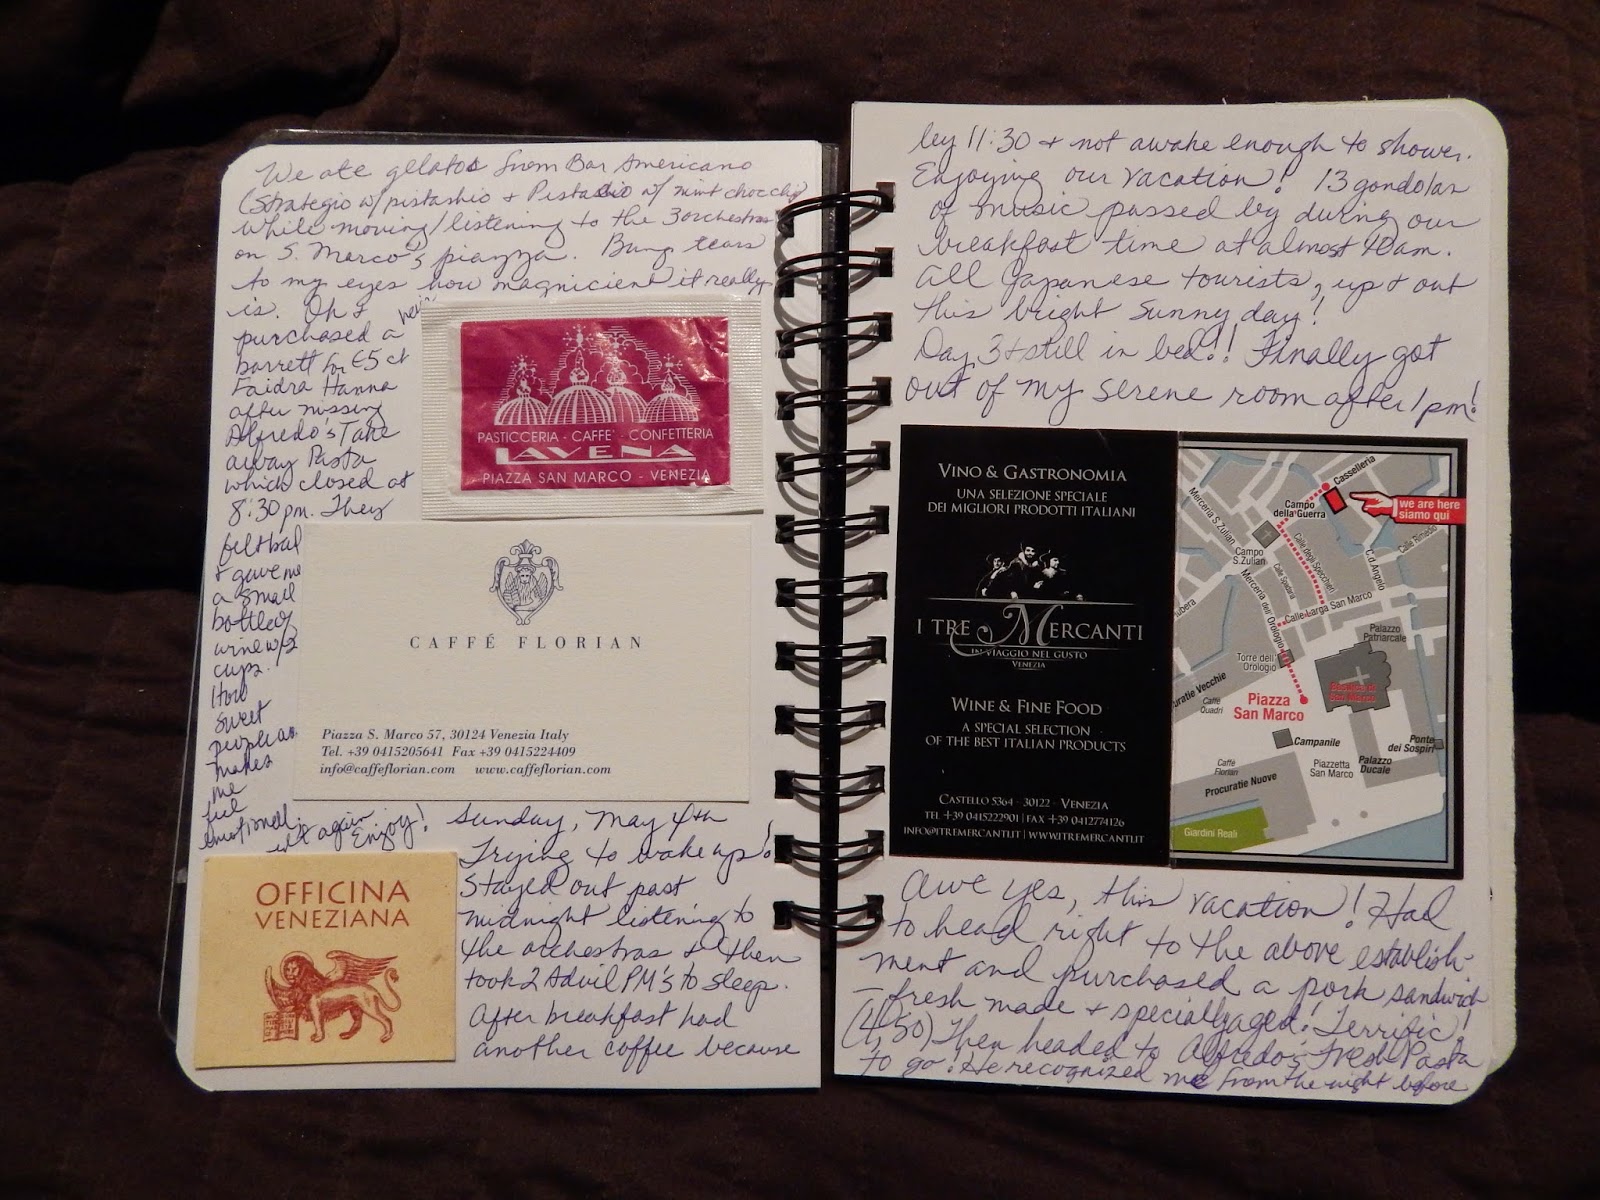 We ate gelatos from Bar Americano
(Strategio w/ pistashio & Pistasio w/ mint choc chip
while moving/listening to the 3 orchestras
on S. Marco's piazza. Bung tears
to my eyes how magnicient it really
is. Oh I
purchased a hair
barrett for €5 ct
Faidra Hanna
after missing
Alfredo's Take
away Pasta
which closed at
8:30 pm. They
felt bad
& gave me
a small
bottle of
wine w/2
cups.
How
sweet
people as
makes
me
feel
emotional
again
Enjoy!
PASTICCERIA - CAFFE' - CONFETTERIA
LAVENA
PIAZZA SAN MARCO - VENEZIA
CAFFÉ FLORIAN
Piazza S. Marco 57, 30124 Venezia Italy
Tel. +39 0415205641 Fax +39 0415224409
info@caffeflorian.com www.caffeflorian.com
OFFICINA
VENEZIANA
Sunday, May 4th
Trying to wake up!
Stayed out past
midnight listening to
the orchestras & then
took 2 Advil PM's to sleep.
After breakfast had
another coffee because
by 11:30 & not awake enough to shower.
Enjoying our vacation! 13 gondolas
of music passed by during our
breakfast time at almost 10am.
All Japanese tourists, up & out
this bright sunny day!
Day 3 & still in bed!! Finally got
out of my serene room after 1pm!
VINO & GASTRONOMIA
UNA SELEZIONE SPECIALE
DEI MIGLIORI PRODOTTI ITALIANI
I TRE MERCANTI
IN VIAGGIO NEL GUSTO
VENEZIA
WINE & FINE FOOD
A SPECIAL SELECTION
OF THE BEST ITALIAN PRODUCTS
CASTELLO 5364 · 30122 · VENEZIA
TEL +39 0415222901 | FAX +39 0412774126
INFO@ITREMERCANTI.IT | WWW.ITREMERCANTI.IT
Casselleria
we are here
siamo qui
Campo
della Guerra
Merceria S. Zulian
Campo
S. Zulian
Calle degli Specchieri
Calle Spadaria
C.d. Angelo
Calle Rimedio
Merceria dell'Orologio
Calle Larga San Marco
Palazzo
Patriarcale
Torre dell'
Orologio
Procuratie Vecchie
Caffè
Quadri
Piazza
San Marco
Basilica di
San Marco
Campanile
Ponte
dei Sospiri
Caffè
Florian
Piazzetta
San Marco
Palazzo
Ducale
Procuratie Nuove
Giardini Reali
Awe yes, this vacation! Had
to head right to the above establish-
ment and purchased a pork sandwich
- fresh made & specially aged! Terrific!
(4,50) Then headed to Alfredo's Fresh Pasta
to go! He recognized me from the night before